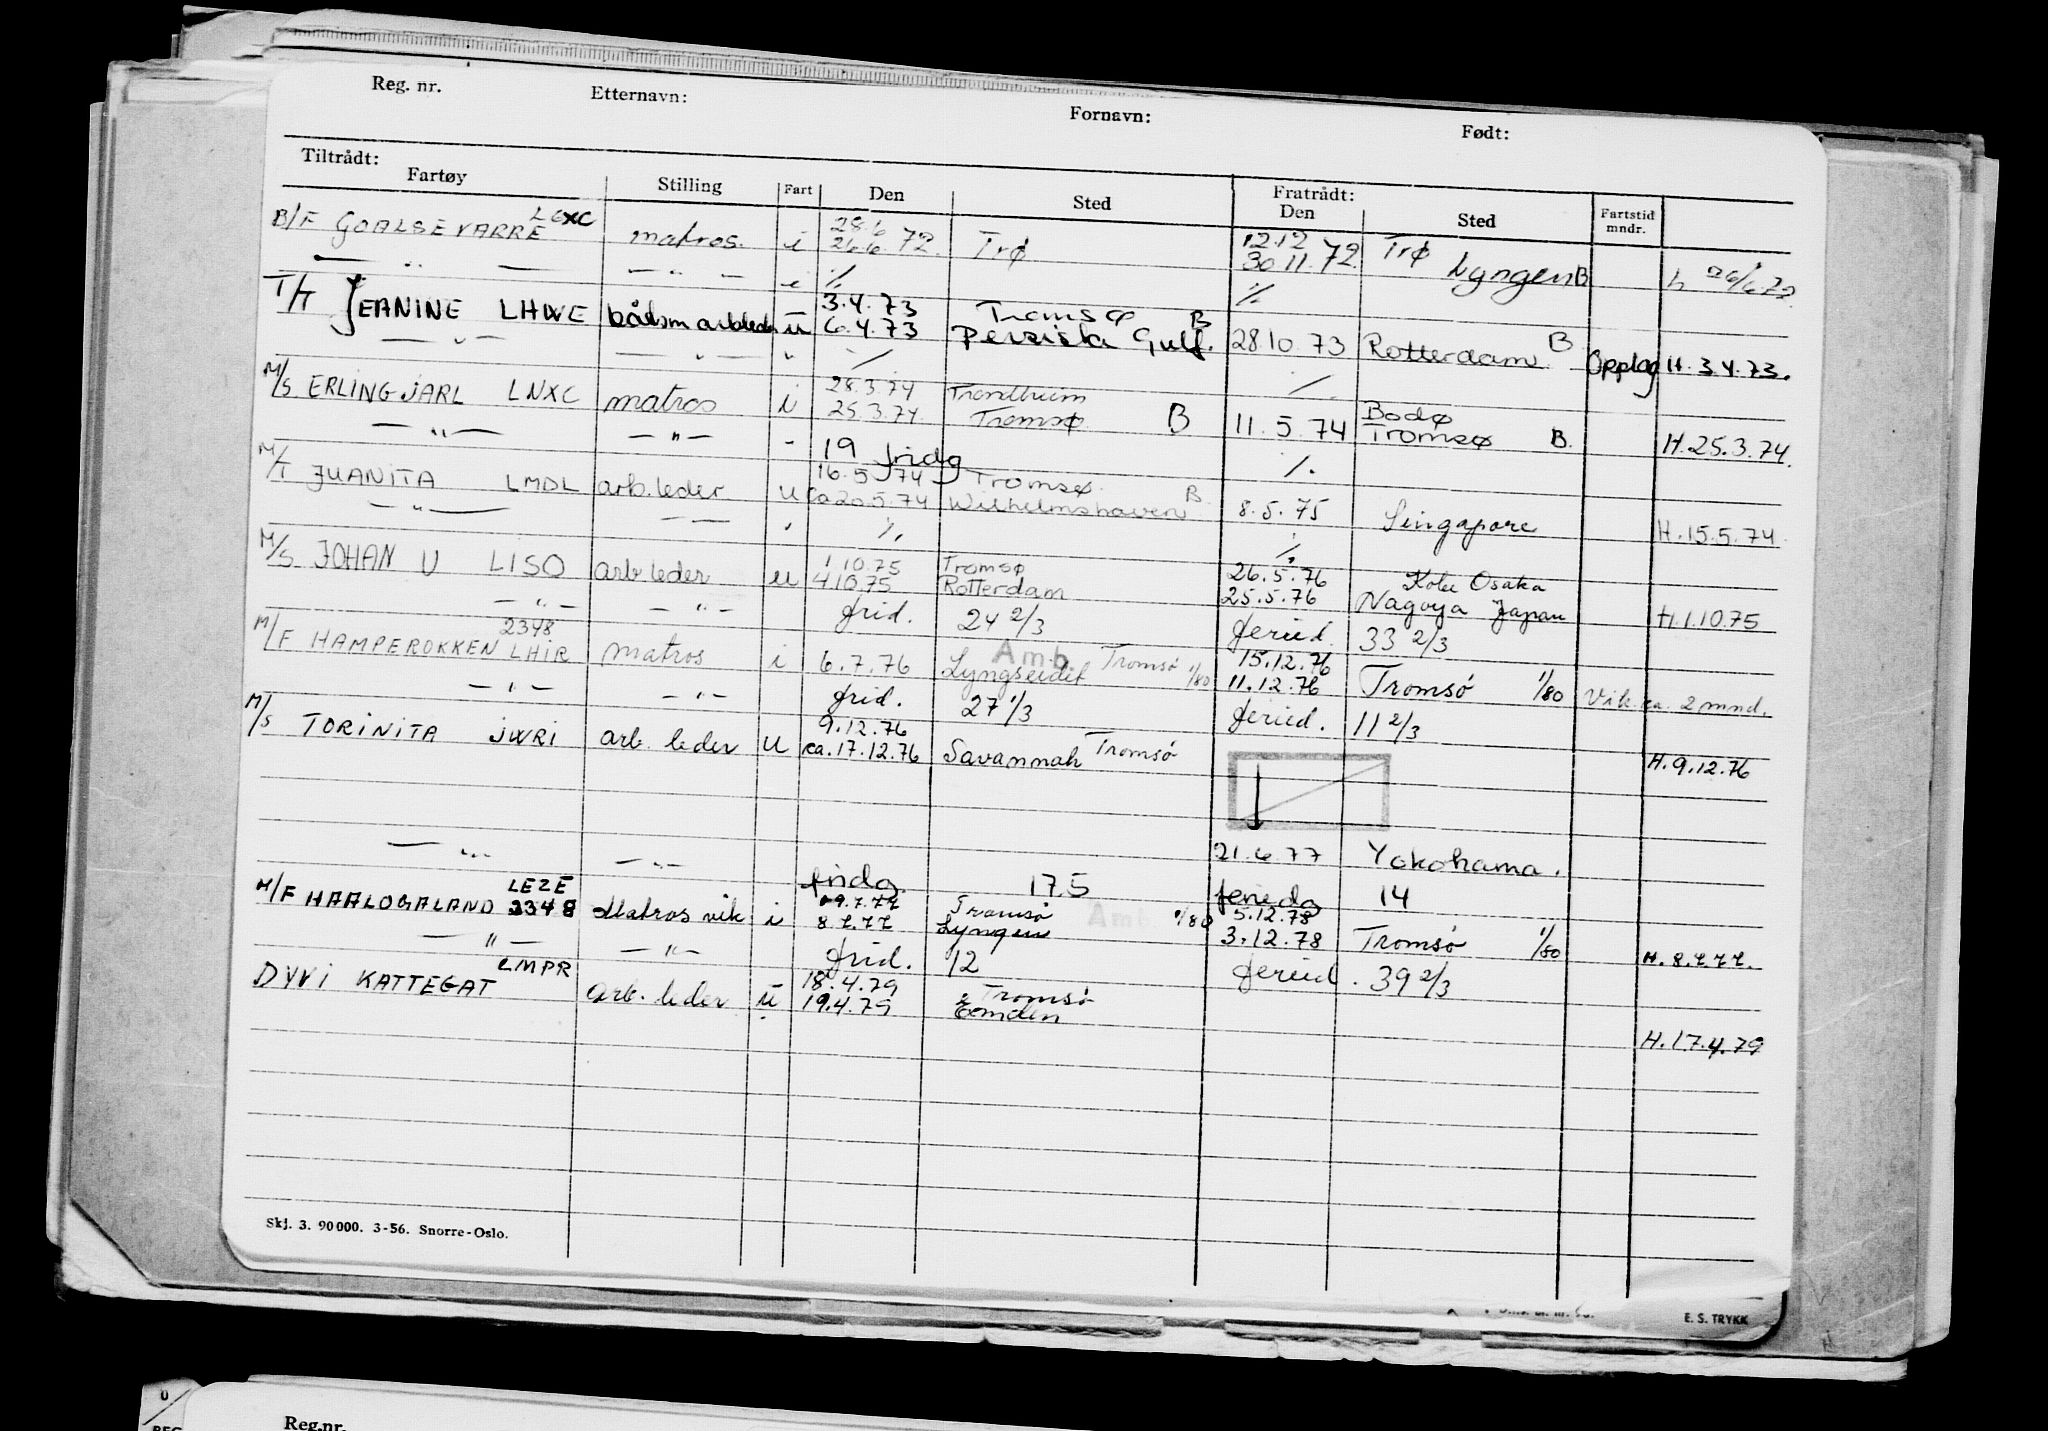 Reg. nr. Etternavn: Fornavn: Født:
Tiltrådt: Fratrådt:
Fartøy Stilling Fart Den Sted Den Sted Fartstid mndr.
LGXC 28.6 12.12
B/F GOALSEVARRE matros. i 26.6. 72. Trø 30 11. 72. Trø Lyngen B h 26/6.72.
— " — — " — i ·/. ·/.
3.4.73 Tromsø B
T/T JEANINE LHWE båtsm arbleder u 6.4.73 Persiska Gulf. 28.10.73 Rotterdam B Opplag H. 3.4.73.
— " — — " — " ·/. ·/.
28.3.74 Trondheim Bodø
M/S ERLING JARL LNXC matros i 25.3.74. Tromsø B 11.5.74 Tromsø B. H.25.3.74.
— " — — " — - 19 fridg ·/.
16.5.74 Tromsø
M/T JUANITA LMDL arb.leder u ca 20.5.74 Wilhelmshaven B 8.5.75 Singapore H.15.5.74.
— " — — — ' ·/. ·/.
1.10.75 Tromsø 26.5.76 Kobe Osaka
M/S JOHAN U LISO arb leder u 4.10.75 Rotterdam 25.5.76 Nagoya Japan H.1.10.75
— " — — " — frid. 24 2/3 feried. 33 2/3
2348 Amb. 15.12.76
M/F HAMPEROKKEN LHIR matros i 6.7.76 Lyngseidet Tromsø 1/80 11.12.76 Tromsø 1/80 Vik. ca. 2 mnd.
— " — — " — frid. 27 1/3 feried. 11 2/3
9.12.76
M/S TORINITA JWRI arb. leder u ca.17.12.76 Savannah Tromsø H.9.12.76
— " — — " — 21.6.77 Yokohama.
fridg. 17.5 feriedg 14
LEZE 09.7.77 Tromsø 5.12.78
M/F HAALOGALAND 2348 Matros vik i 8.7.77 Lyngen Amb. 1/80 3.12.78 Tromsø 1/80 H.8.7.77.
— " — — " — frid. 12 feried. 39 2/3
LMPR 18.4.79 Tromsø
DYVI KATTEGAT arb. leder u 19.4.79 Emden H.17.4.79
Skj. 3. 90000. 3-56. Snorre-Oslo.
E. S. TRYKK
Reg.nr.